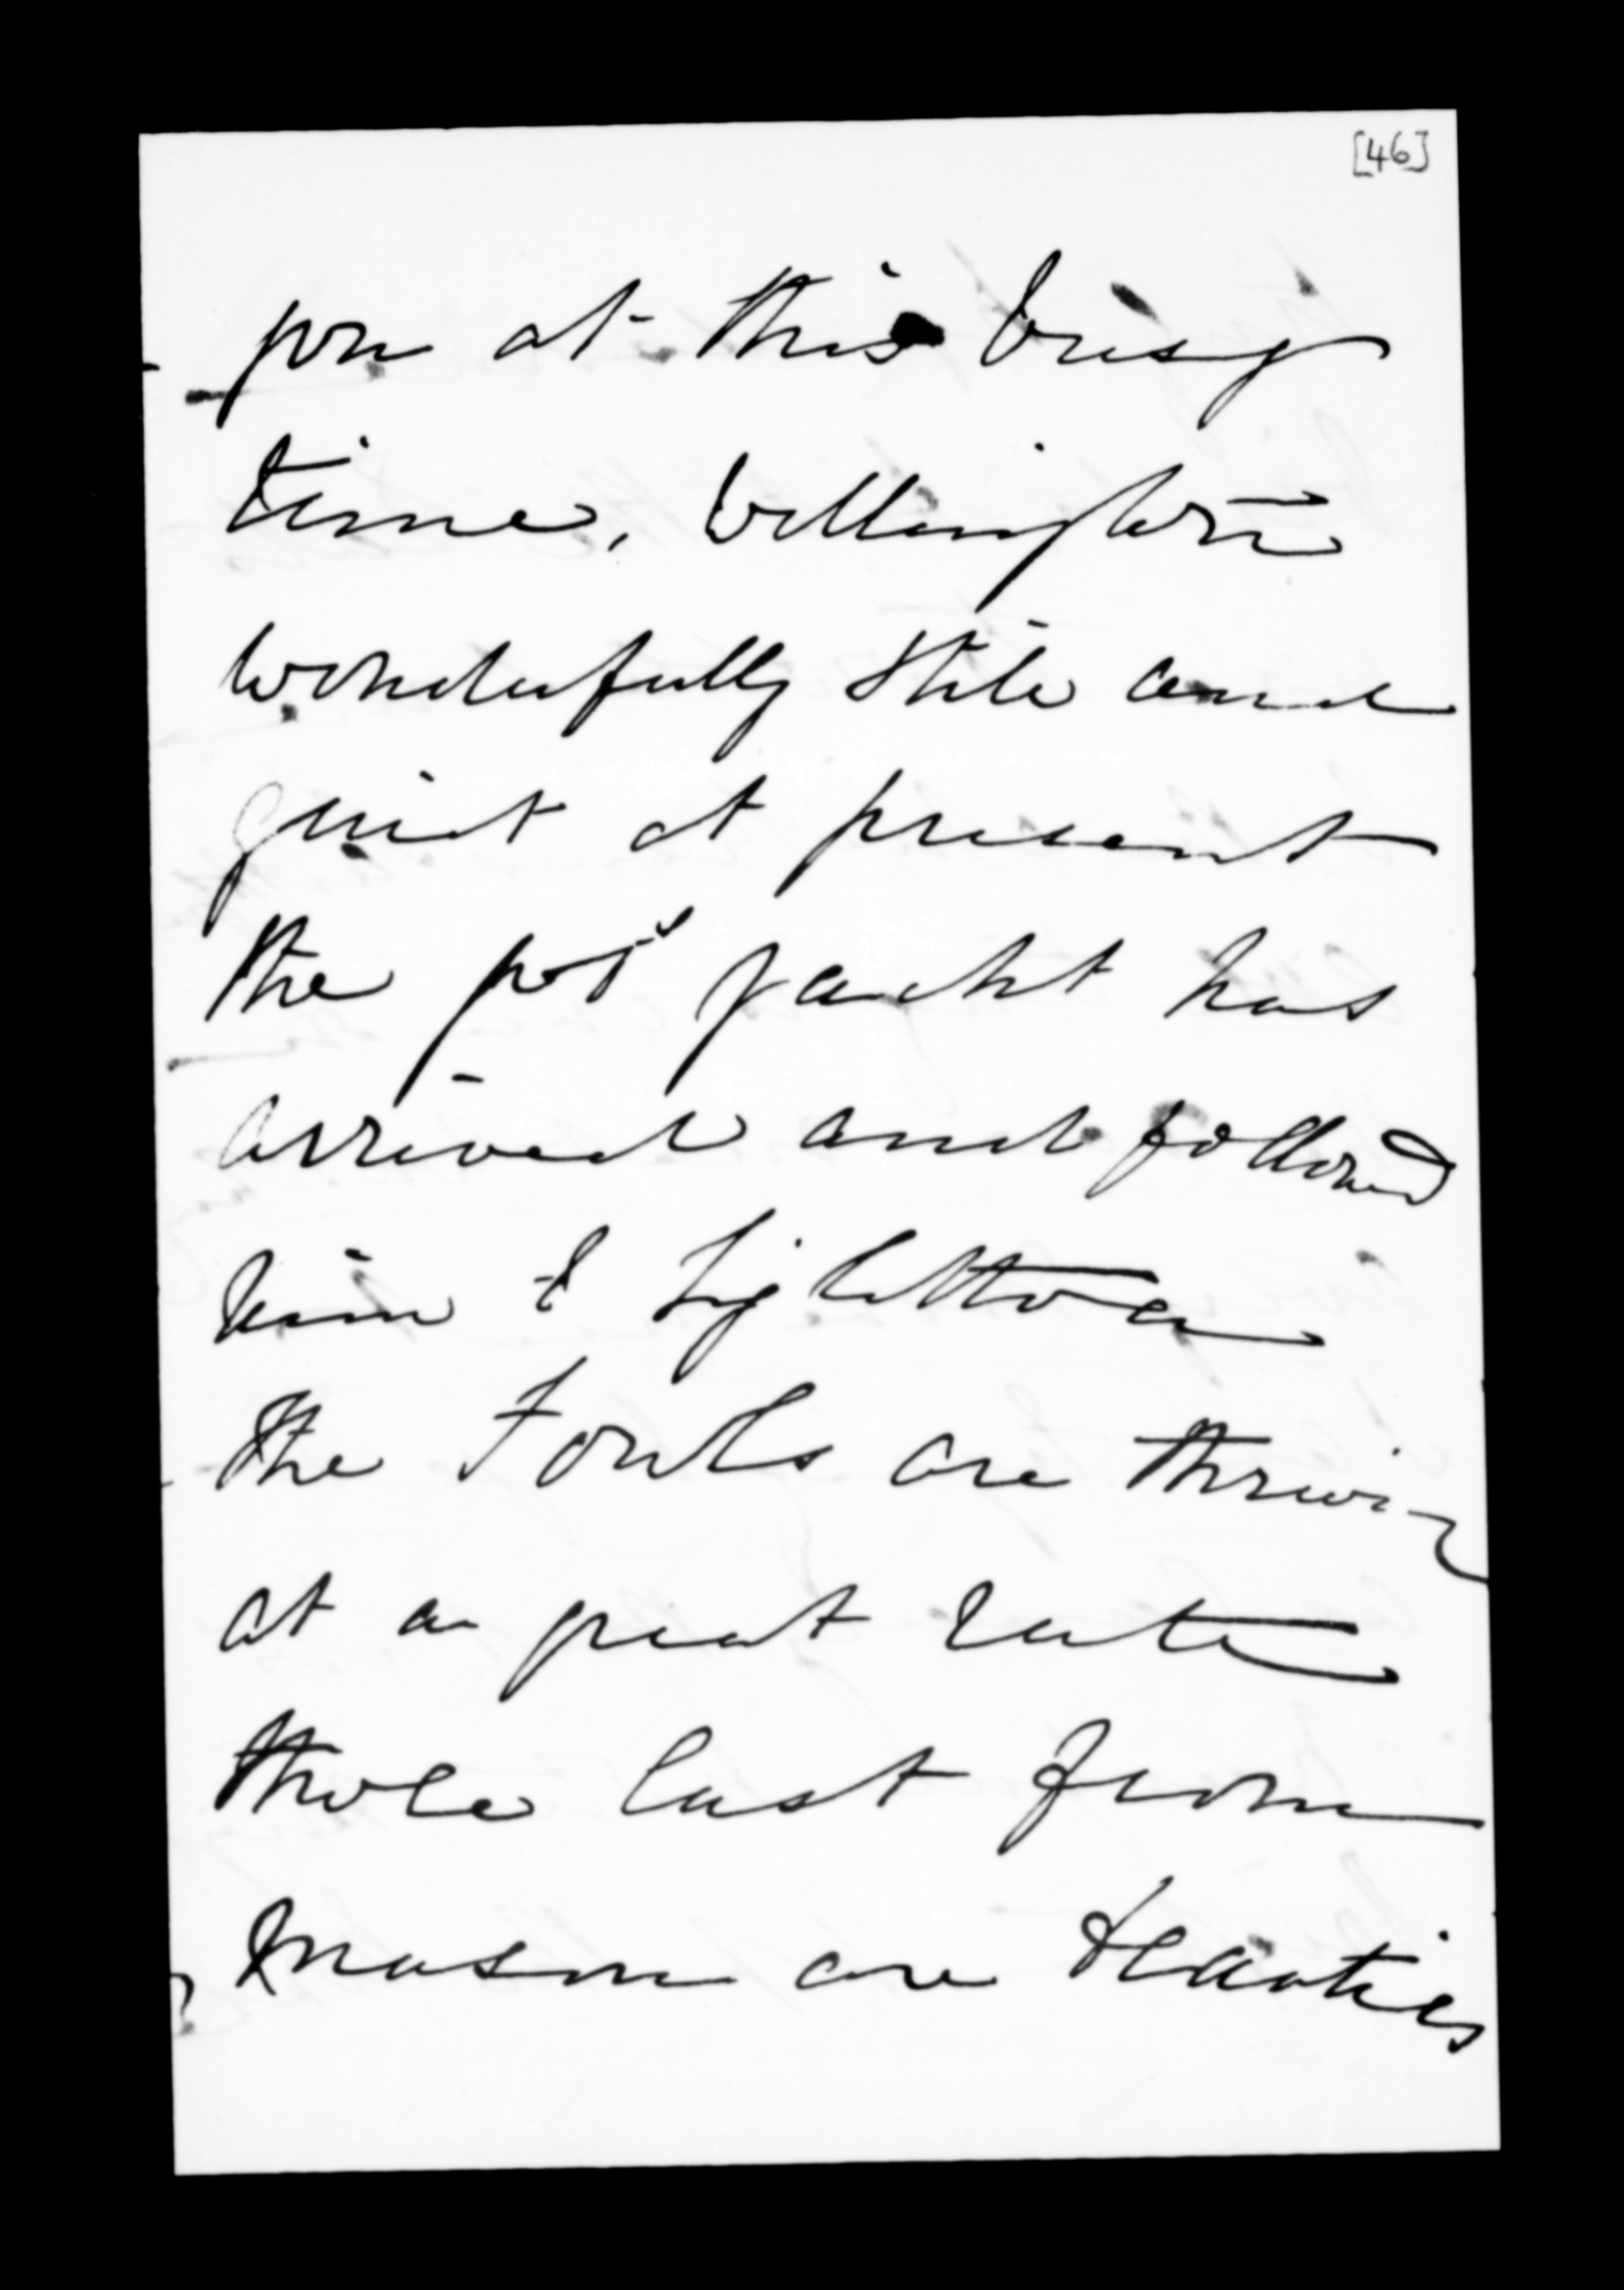 [46]
you at this busy
time, Wellington
wonderfully still and
quiet at present
the govt yacht has
arrived and followed
him to Lyttelton
the Fowls are thriving
at a great rate
those last from
Mason are Beauties